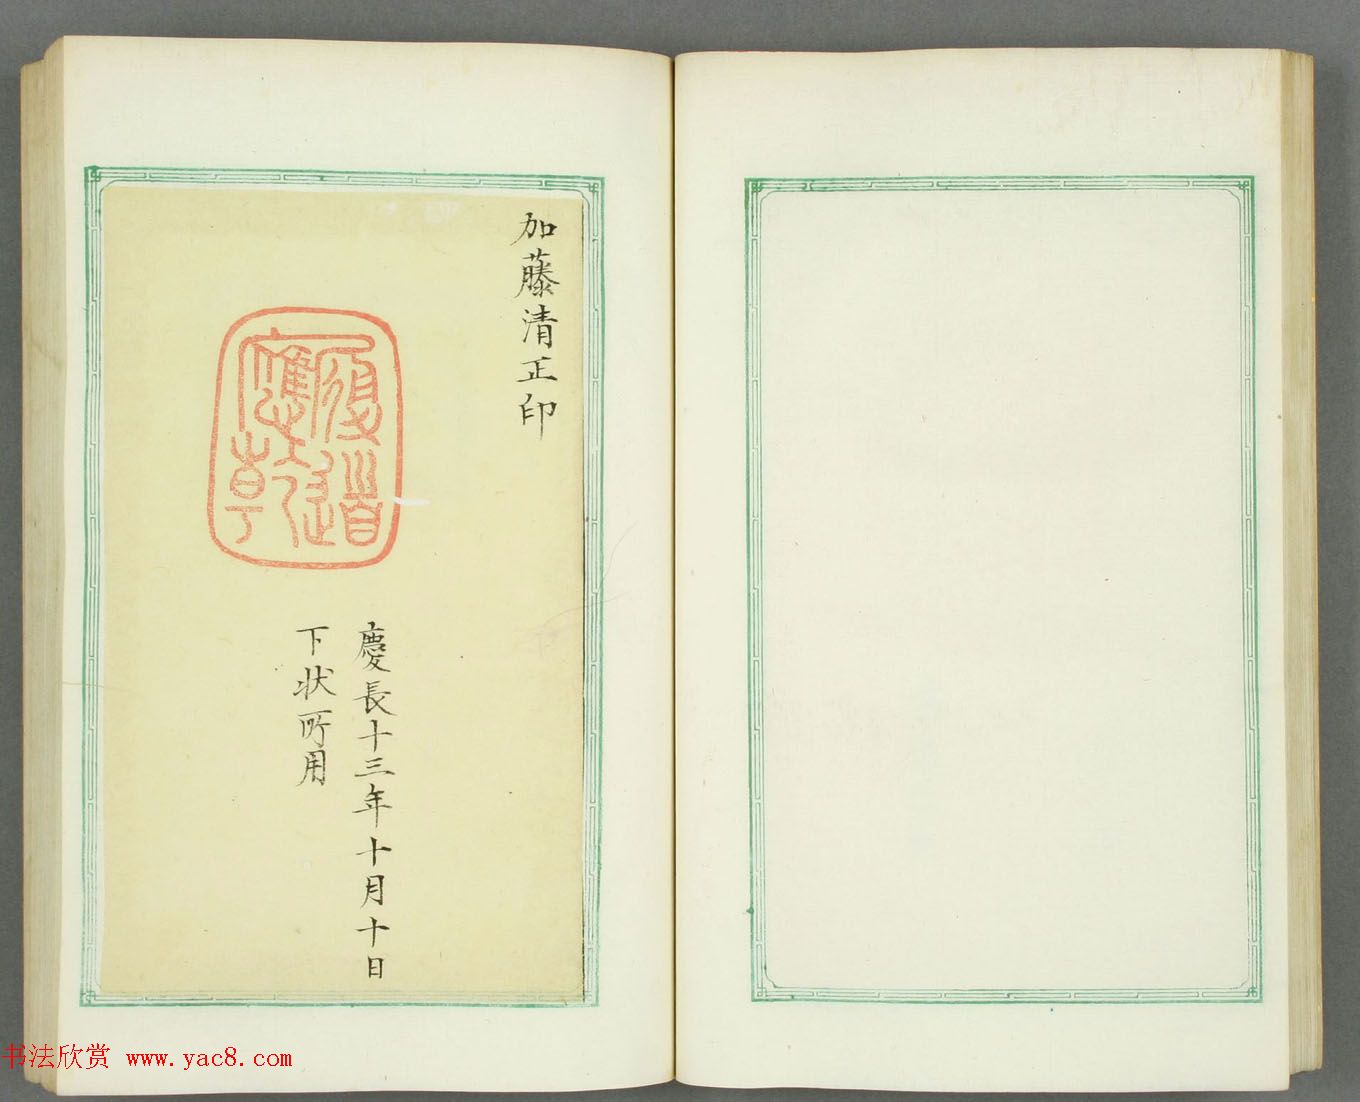 加藤清正印
履道應乾
慶長十三年十月十日
下状所用
书法欣赏 www.yac8.com